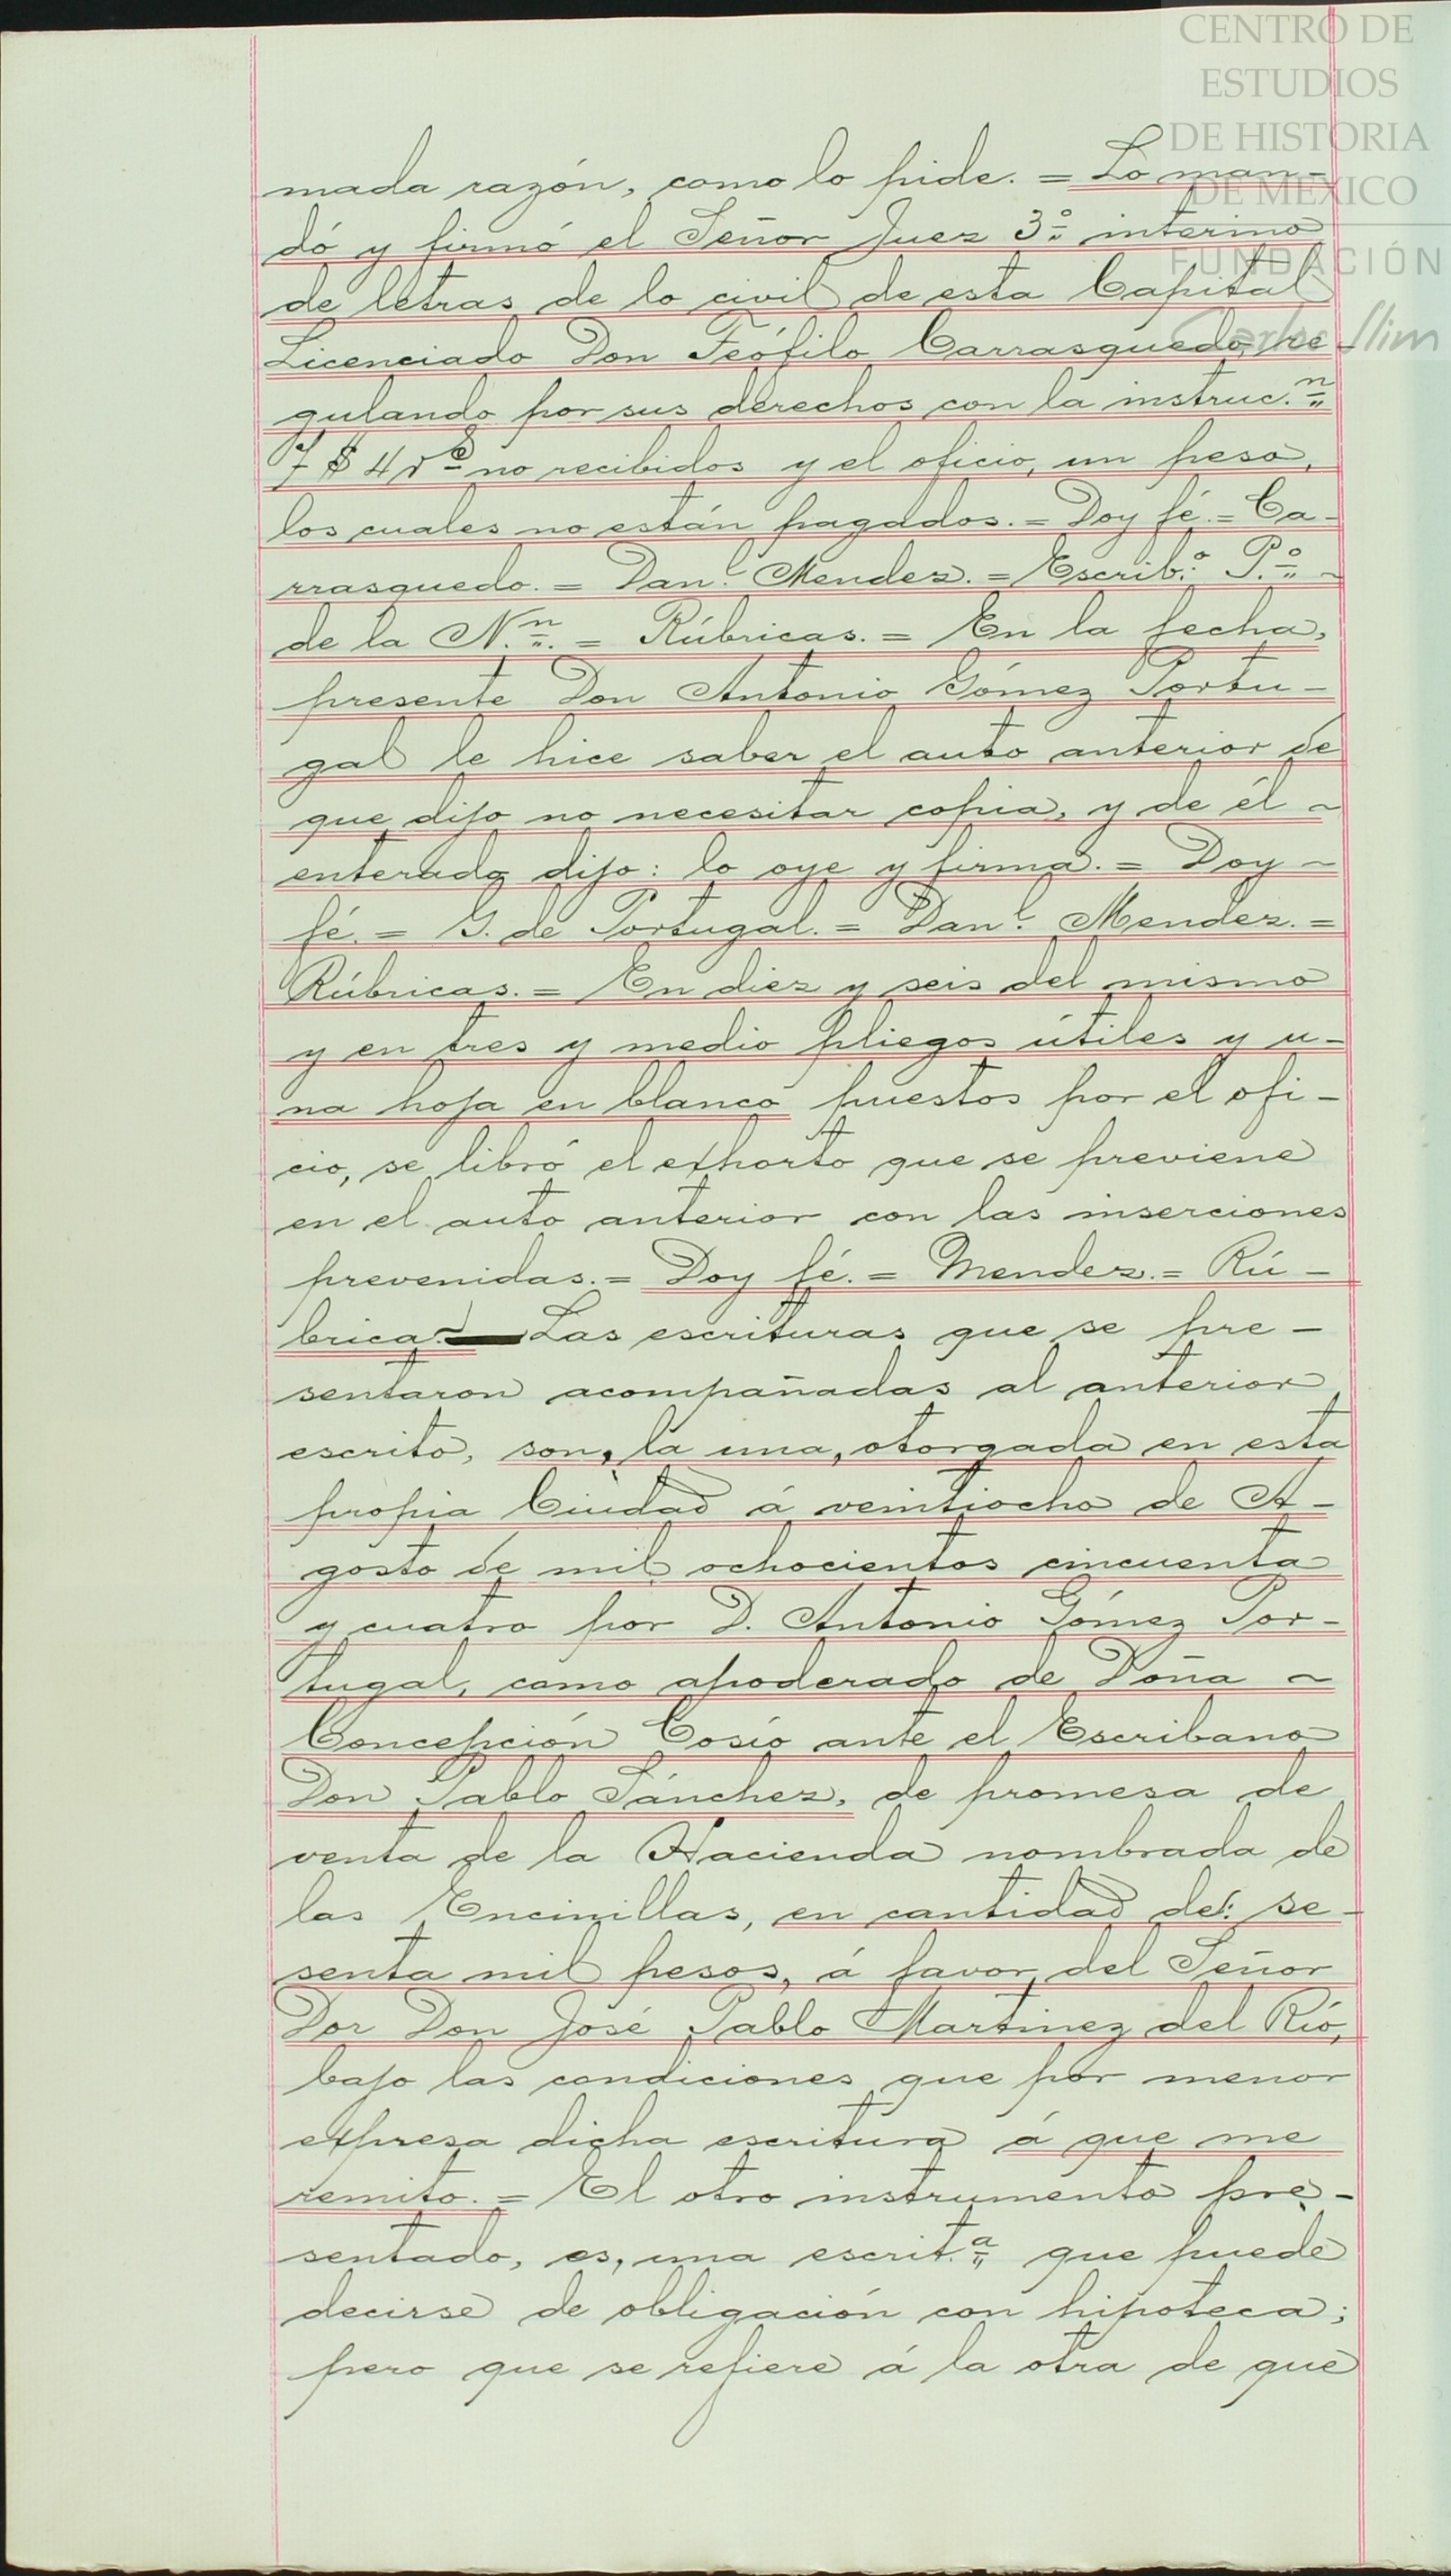 CENTRO DE
ESTUDIOS
DE HISTORIA
DE MEXICO
FUNDACIÓN
Carlos Slim
mada razón, como lo pide. = Lo man-
dó y firmó el Señor Juez 3º interino
de letras de lo civil de esta Capital
Licenciado Don Teófilo Carrasquedo, re
gulando por sus derechos con la instruc.n
7 $ 4 rs no recibidos y el oficio, un peso,
los cuales no están pagados. = Doy fé. = Ca-
rrasquedo. = Danl. Mendez. = Escrib.º P.º ~
de la N.n. = Rúbricas. = En la fecha,
presente Don Antonio Gómez Portu-
gal le hice saber el auto anterior de
que dijo no necesitar copia, y de él ~
enterado dijo: lo oye y firma. = Doy ~
fé. = G. de Portugal. = Danl. Mendez. =
Rúbricas. = En diez y seis del mismo
y en tres y medio pliegos útiles y u-
na hoja en blanco puestos por el ofi-
cio, se libró el exhorto que se previene
en el auto anterior con las inserciones
prevenidas. = Doy fé. = Mendez. = Rú-
brica. — Las escrituras que se pre-
sentaron acompañadas al anterior
escrito, son, la una, otorgada en esta
propia Ciudad á veintiocho de A-
gosto de mil ochocientos cincuenta
y cuatro por D. Antonio Gómez Por-
tugal, como apoderado de Doña ~
Concepción Cosío ante el Escribano
Don Pablo Sánchez, de promesa de
venta de la Hacienda nombrada de
las Encinillas, en cantidad de: se-
senta mil pesos, á favor del Señor
Dor Don José Pablo Martinez del Río,
bajo las condiciones que por menor
expresa dicha escritura á que me
remito. = El otro instrumento pre-
sentado, es, una escrit.a que puede
decirse de obligación con hipoteca;
pero que se refiere á la otra de que